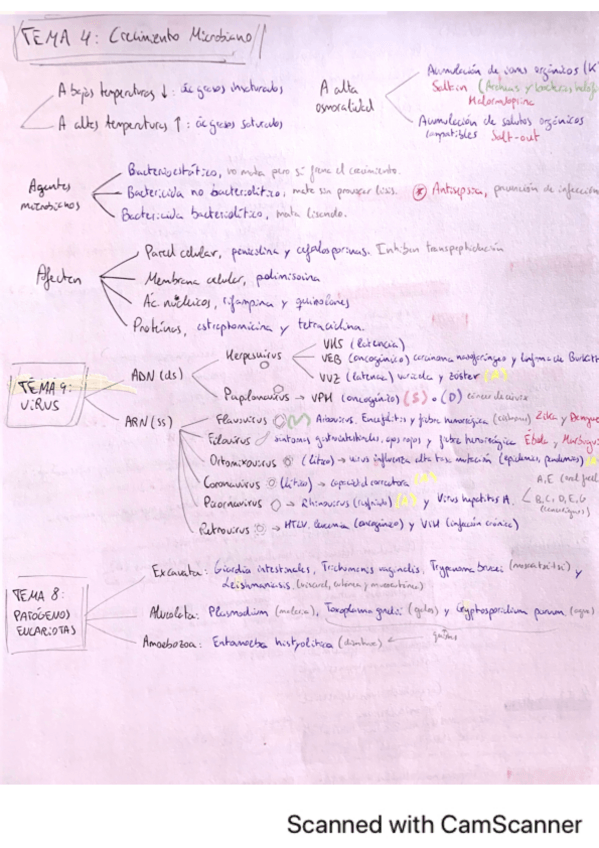 TEMA 4: Crecimiento Microbiano
A bajas temperaturas ↓: ác grasos insaturados
A altas temperaturas ↑: ác grasos saturados
A alta osmolaridad
Acumulación de iones orgánicos (K
Salt-in (Archaeas y bacterias
Acumulación de solutos orgánicos compatibles Salt-out
Agentes microbianos
Bacteriostático, no mata pero sí frena el crecimiento.
Bactericida no bacteriolítico, mata sin provocar lisis.
Bactericida bacteriolítico, mata lisando.
* Antisepsia, prevención de infección
Afectan
Pared celular, penicilina y cefalosporinas. Inhiben transpeptidación
Membrana celular, polimixina
Ác nucleicos, rifampina y quinolonas
Proteínas, estreptomicina y tetraciclina.
TEMA 9: VIRUS
ADN (ds)
Herpesvirus
VHS (latencia)
VEB (oncogénico) carcinoma nasofaríngeo y linfoma de Burkitt
VVZ (latencia) varicela y zóster (A)
Papilomavirus → VPH (oncogénico) (S) o (D) cáncer de cérvix
ARN (ss)
Flavivirus Arbovirus. Encefalitis y fiebre hemorrágica Zika y Dengue
Filovirus síntomas gastrointestinales, ojos rojos y fiebre hemorrágica Ébola, Marburg
Ortomixovirus (lítico) → virus influenza alta tasa mutación (epidemias, pandemias) (A
Coronavirus (lítico) → capacidad correctora (A)
Picornavirus → Rhinovirus (resfriado) (A) y Virus hepatitis A.
A, E (oral fecal
B, C, D, E, G
Retrovirus → HTLV. Leucemia (oncogénico) y VIH (infección crónica)
TEMA 8: PATÓGENOS EUCARIOTAS
Excavata: Giardia intestinales, Trichomonis vaginalis, Trypanoma brucei (mosca tsetse) y
Leishmaniasis (visceral, cutánea y mucocutánea)
Alveolata: Plasmodium (malaria), Toxoplasma gondii (gatos) y Cryptosporidium parvum (agua)
Amoebozoa: Entamoeba histyolitica
Scanned with CamScanner